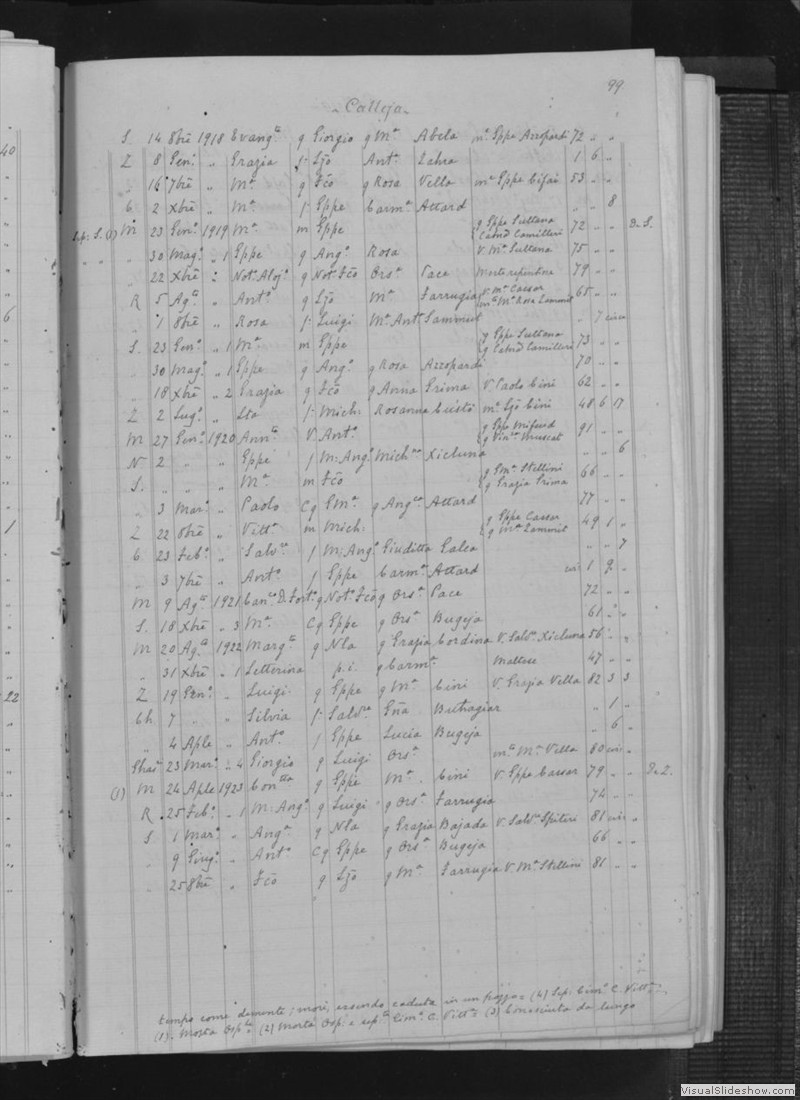 99
Calleja
S. 14 8bre 1918 Evangta g Giorgio g Ma Abela ma Eppe Azzopardi 72 " "
40
Z 8 Genro " Grazia f. Ljo Anta Zahra 1 6 "
" 16 7bre " Ma g Fco g Rosa Vella ma Eppe Cifai 53 " "
G 2 Xbre " Ma f. Eppe Carma Attard " " 8
Sep: S. (1) M 23 Genro 1919 Ma m Eppe {g Eppe Sultana g Catnd Camilleri 72 " " De S.
" 30 Mago " 1 Eppe g Ango Rosa V Ma Sultana 75 " "
" 22 Xbre " Noto Alojo g Noto Fco Orsa Pace Morte repentina 79 " "
R 5 Agto " Anto g Ljo Ma Farrugia V Ma Cassar ma Ma Rosa Zammit 65 " "
6
" 1 8bre " Rosa f. Luigi Ma Anta Sammut " 7 circa
S. 23 Genro " 1 Ma m Eppe {g Eppe Sultana g Catnd Camilleri 73 " "
" 30 Mago " 1 Eppe g Ango g Rosa Azzopardi 70 " "
" 18 Xbre " 2 Grazia g Fco g Anna Grima V Paolo Cini 62 " "
Z 2 Lugo " Lta f. Mich: Rosanna Custò ma Ljo Cini 48 6 17
M 27 Genro 1920 Annta V Anto {g Eppe Mifsud g Vinca Muscat 91 " "
N 2 " " Eppe f M: Ango Michna Xicluna " " 6
S. " " " Ma m Fco {g Gma Stellini g Grazia Grima 66 " "
" 3 Marzo " Paolo Cg Gma g Angca Attard 77 " "
1
Z 22 8bre " Vitta m Mich: {g Eppe Cassar g Ma Zammit 49 1 "
G 23 Febo " Salvre f M: Ango Giuditta Galea " " 7
" 3 7bre " Anto f Eppe Carma Attard 1 9 "
M 9 Agto 1921 Canco D. Forto g Noto Fco g Orsa Pace 72 " "
S. 18 Xbre " 3 Ma Cg Eppe g Orsa Bugeja 61 " "
M 20 Agto 1922 Margta g Nla g Grazia Cordina V. Salvre Xicluna 56 " "
" 31 Xbre " 1 Letterina p.i. g Carma Maltese 47 " "
22
Z 19 Genro " Luigi g Eppe g Ma Cini V. Grazia Vella 82 3 3
Gh 7 " " Silvia f. Salvre Gna Buttagiar " 1 "
" 4 Aple " Anto f Eppe Lucia Bugeja " 6 "
Ghas 23 Marzo " 4 Giorgio g Luigi Orsa ma Ma Vella 80 circa "
(1) M 24 Aple 1923 Contta g Eppe Ma Cini V Eppe Cassar 79 " " De Z.
R 25 Febo " 1 M: Ango g Luigi g Orsa Farrugia 74 " "
S 1 Marzo " Anga g Nla g Grazia Bajada V. Salvre Spiteri 81 circa "
" 9 Giugo " Anto Cg Eppe g Orsa Bugeja 66 " "
" 25 8bre " Fco g Ljo g Ma Farrugia V. Ma Stellini 81 " "
tempo come demente; morì, essendo caduta in un pozzo = (4) Sep: Cimo C. Vitta
(1) Morta Osple (2) Morta Osp: e septa Cimo C. Vitta (3) Conosciuta da lungo
VisualSlideshow.com